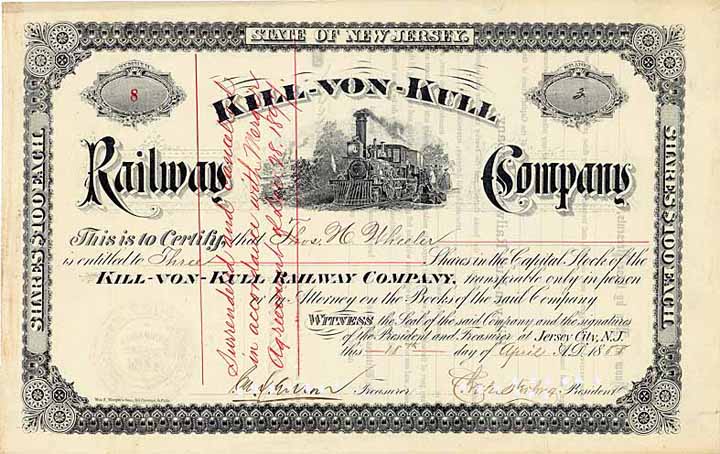 STATE OF NEW JERSEY.
NUMBER
8
SHARES
3
KILL-VON-KULL
Railway Company
SHARES $100 EACH
SHARES $100 EACH
This is to Certify that Thos. N. Wheeler
is entitled to Three Shares in the Capital Stock of the
KILL-VON-KULL RAILWAY COMPANY, transferable only in person
or by Attorney on the Books of the said Company
WITNESS the Seal of the said Company and the signatures
of the President and Treasurer at Jersey City, N.J.
this 18th day of April A.D. 188
Treasurer
President
Surrendered and Canceled
in accordance with Merger
Agreement of